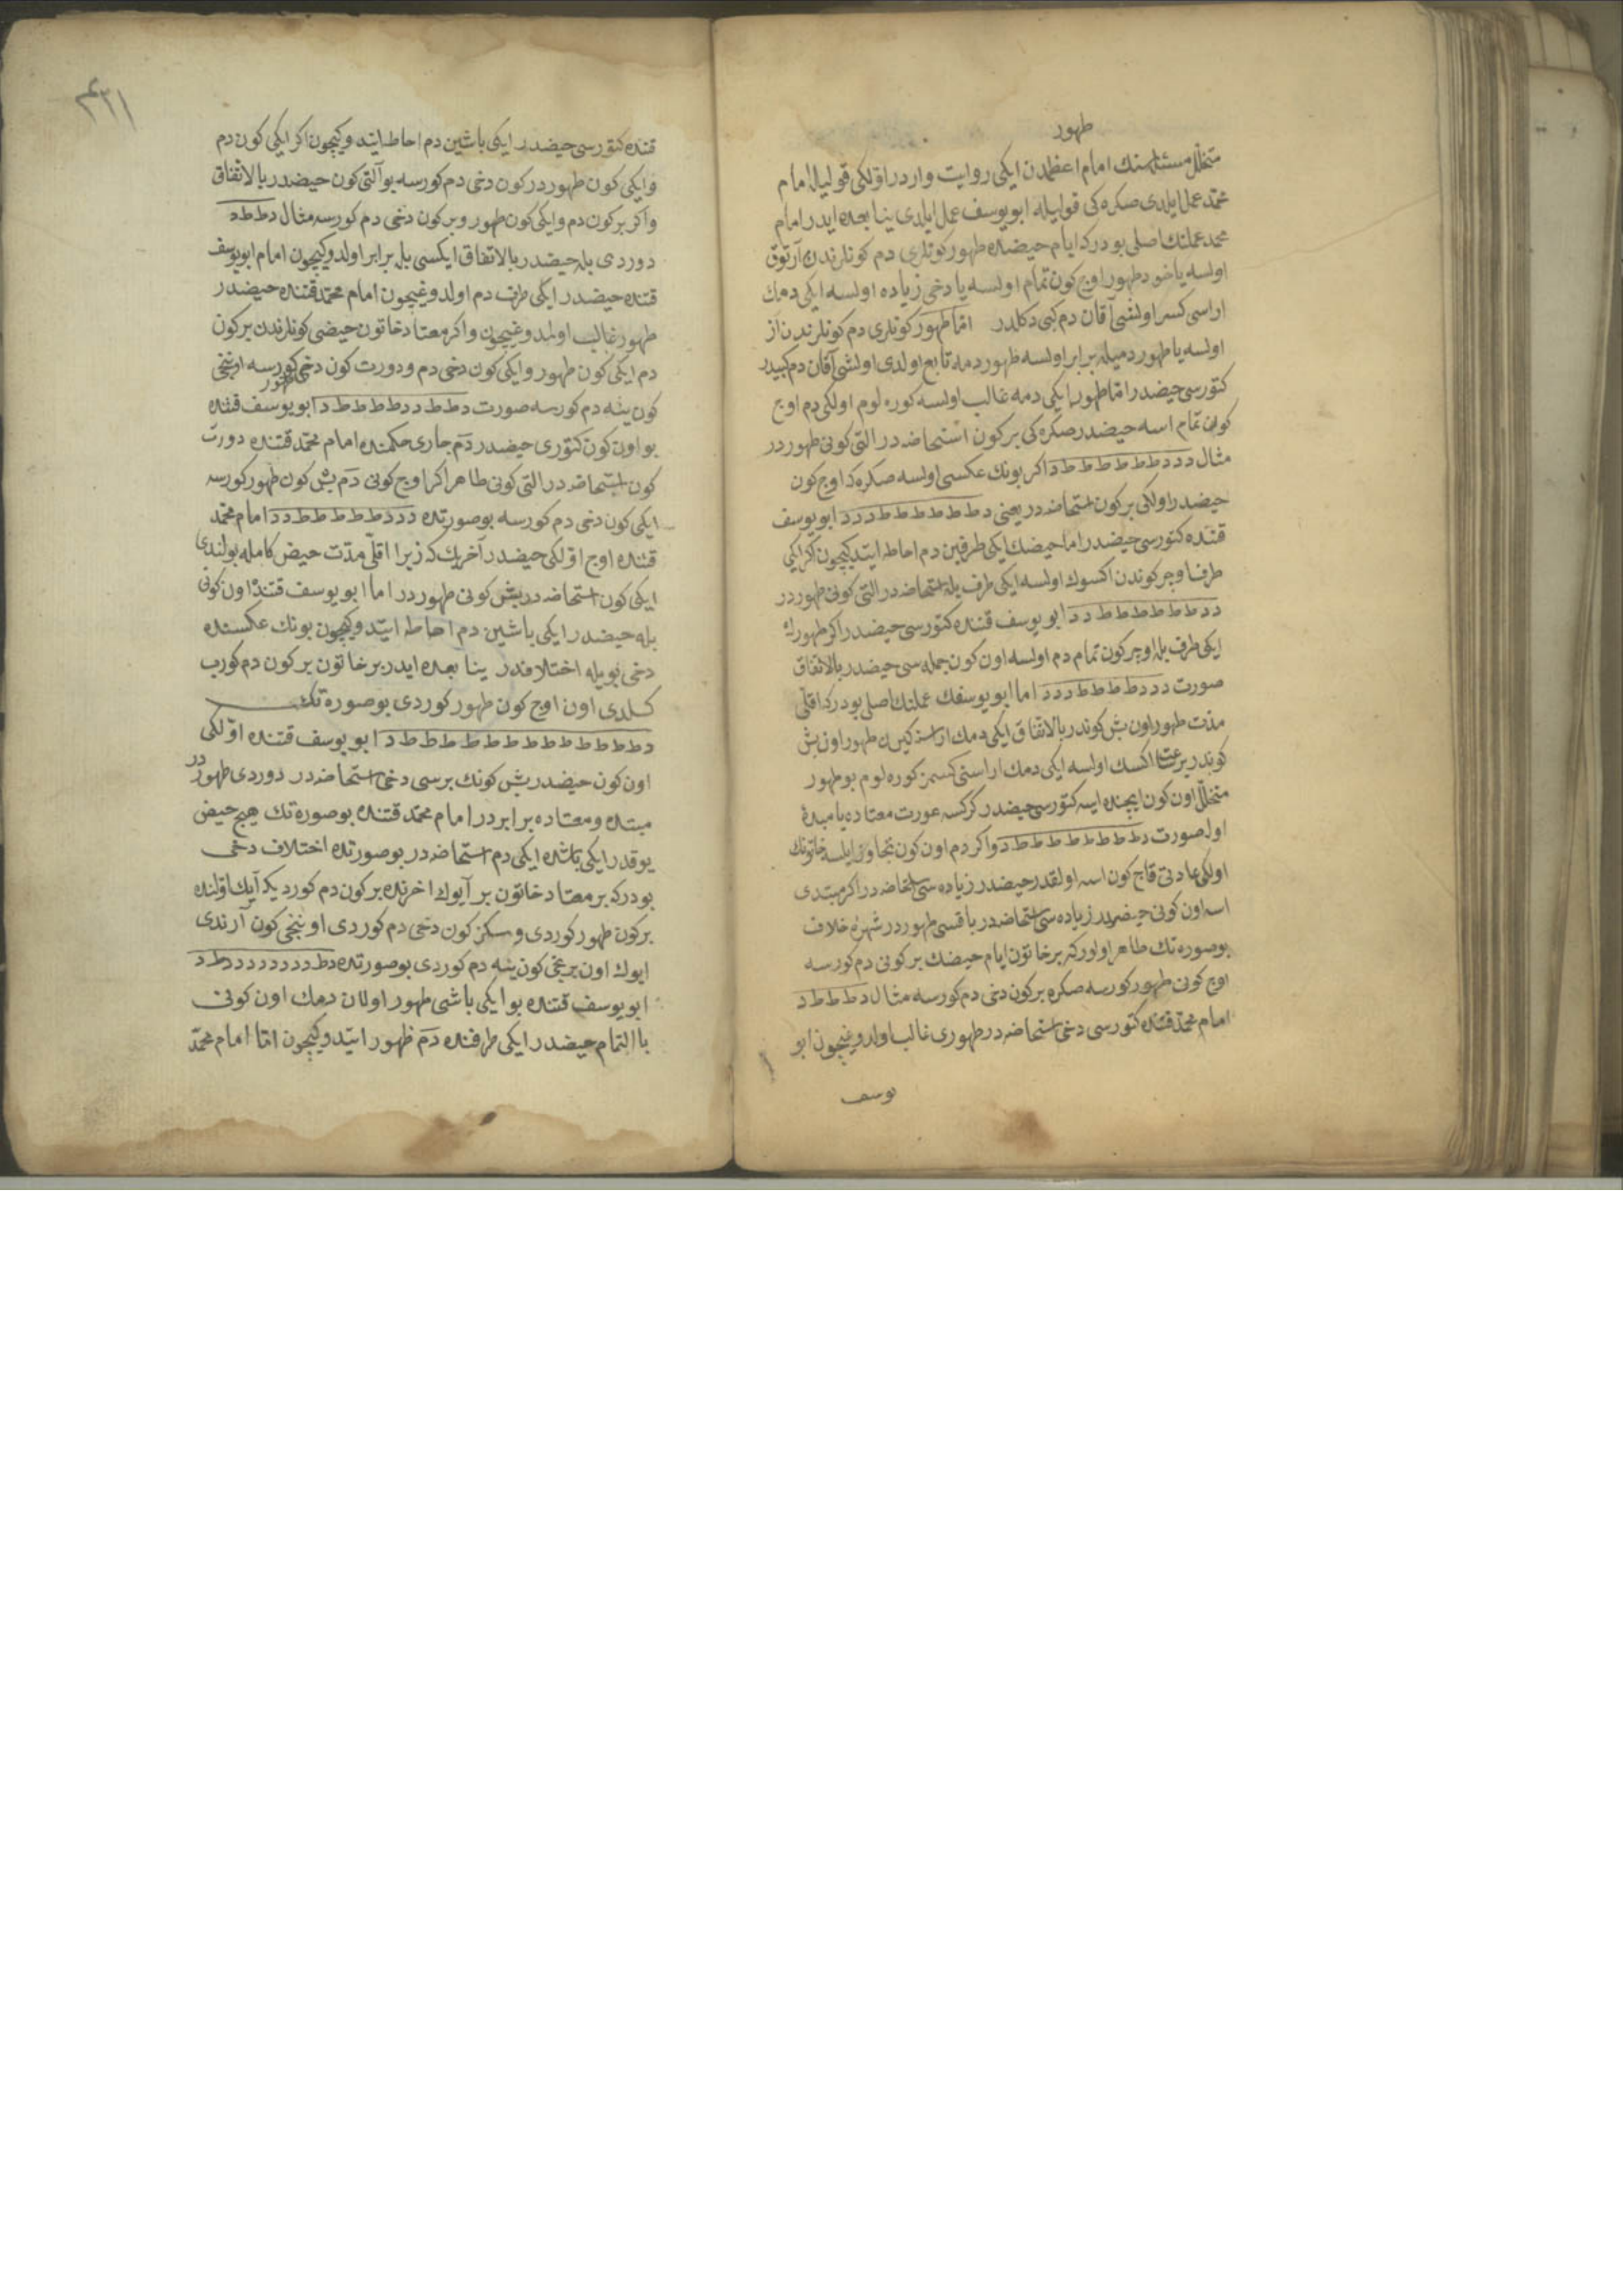 طهور
متخلل مسئله‌سنك امام اعظمدن ايكی روايت واردر اوّلكی قوليله امام
محمّد عمل ايلدی صكره‌كی قوليله ابو يوسف عمل ايلدی ينابيعده ايدر امام
محمد عملنك اصلی بودركه ايام حيضده طهور كونلری دم كونلرندن آرتوق
اولسه ياخود طهور اوج كون تمام اولسه يا دخی زياده اولسه ايكی دمك
اراسی كسر اولشی آقان دم كبی دكلدر امّا طهور كونلری دم كونلرندن آز
اولسه يا طهور دميله برابر اولسه طهور دمه تابع اولدی اولشی آقان دم كبيدر
كتورسی حيضدر امّا طهور ايكی دمه غالب اولسه كوره لوم اولكی دم اوج
كون تمام اسه حيضدر صكره‌كی بر كون استحاضه در التی كونی طهوردر
مثال د د د ط ط ط ط ط ط د اكر بونك عكسی اولسه صكره‌كه اوج كون
حيضدر اولكی بر كون استحاضه در يعنی د ط ط ط ط ط ط د د د ابو يوسف
قتنده كتورسی حيضدر اما حيضك ايكی طرفين دم احاطه ايتدكيچون اكر ايكی
طرف اوجر كوندن اكسوك اولسه ايكی طرف بله استحاضه در التی كونی طهوردر
د د ط ط ط ط ط ط د د ابو يوسف قتنده كتورسی حيضدر اكر طهورك
ايكی طرف بله اوجر كون تمام دم اولسه اون كون جمله سی حيضدر بالاتفاق
صورت د د د ط ط ط ط د د د اما ابو يوسفك عملنك اصلی بودركه اقلّ
مدّت طهور اون بش كوندر بالاتفاق ايكی دمك اراسنه كيرن طهور اون بش
كوندر بر ساعت اكسك اولسه ايكی دمك اراسنی كسمز كوره لوم بو طهور
متخلّل اون كون ايچنده ايسه كتورسی حيضدر كركسه عورت معتاده يا مبتده
اوله صورت د ط ط ط ط ط ط ط ط د واكر دم اون كون تجاوز ايلسه خاتونك
اولكی عادتی قاج كون اسه اولقدر حيضدر زياده سی استحاضه در اكر مبتدی
اسه اون كونی حيضدر زياده سی استحاضه در باقسی طهوردر شهره خلاف
بو صورة‌تك ظاهر اولوركه بر خاتون ايام حيضك بر كونی دم كورسه
اوج كونی طهور كورسه صكره بر كون دخی دم كورسه مثال د ط ط ط د
امام محمّد قتنده كتورسی دخی استحاضه در طهوری غالب اولدوغيچون ابو
يوسف
قتنده كتورسی حيضدر ايكی باشين دم احاطه ايتدوكيچون اكر ايكی كون دم
وايكی كون طهوردر كون دخی دم كورسه بو آلتی كون حيضدر بالاتفاق
واكر بر كون دم وايكی كون طهور وبر كون دخی دم كورسه مثال د ط ط د
دوردی بله حيضدر بالاتفاق ايكسی بله برابر اولدوكيچون امام ابو يوسف
قتنده حيضدر ايكی طرف دم اولدوغيچون امام محمّد قتنده حيضدر
طهور غالب اولمدوغيچون واكر معتاد خاتون حيضی كونلرندن بر كون
دم ايكی كون طهور وايكی كون دخی دم ودورت كون دخی طهور كورسه اوننجی
كون ينه دم كورسه صورت د ط ط د د ط ط ط ط د ابو يوسف قتنده
بو اون كون كتوری حيضدر دم جاری حكمنده امام محمّد قتنده دورت
كون استحاضه در التی كونی طاهر اكر اوج كونی دم بش كون طهور كورسه
ايكی كون دخی دم كورسه بو صورتده د د د ط ط ط ط ط د د امام محمّد
قتنده اوج اوّلكی حيضدر آخريك كه زيرا اقلّ مدّت حيض كامله بولندی
ايكی كون استحاضه در بش كونی طهوردر اما ابو يوسف قتنده اون كونی
بله حيضدر ايكی باشين دم احاطه ايتدوكيچون بونك عكسنده
دخی بويله اختلافدر ينابيعده ايدر بر خاتون بر كون دم كورب
كلدی اون اوج كون طهور كوردی بو صورة‌تك
د ط ط ط ط ط ط ط ط ط ط ط ط ط د ابو يوسف قتنده اوّلكی
اون كون حيضدر بش كونك برسی دخی استحاضه در دوردی طهوردر
مبتده ومعتاده برابردر امام محمّد قتنده بو صورة‌تك هيچ حيض
يوقدر ايكی باشده ايكی دم استحاضه در بو صورتده اختلاف دخی
بودركه بر معتاد خاتون بر آيوك اخرنده بر كون دم كورديكه آيك اوّلنده
بر كون طهور كوردی وسكز كون دخی دم كوردی اوننجی كون آرندی
ايوك اون برنجی كون ينه دم كوردی بو صورتده د ط د د د د د د د د ط د
ابو يوسف قتنده بو ايكی باشی طهور اولان دمك اون كونی
باالتمام حيضدر ايكی طرفنده دم ظهور ايتدوكيچون امّا امام محمّد